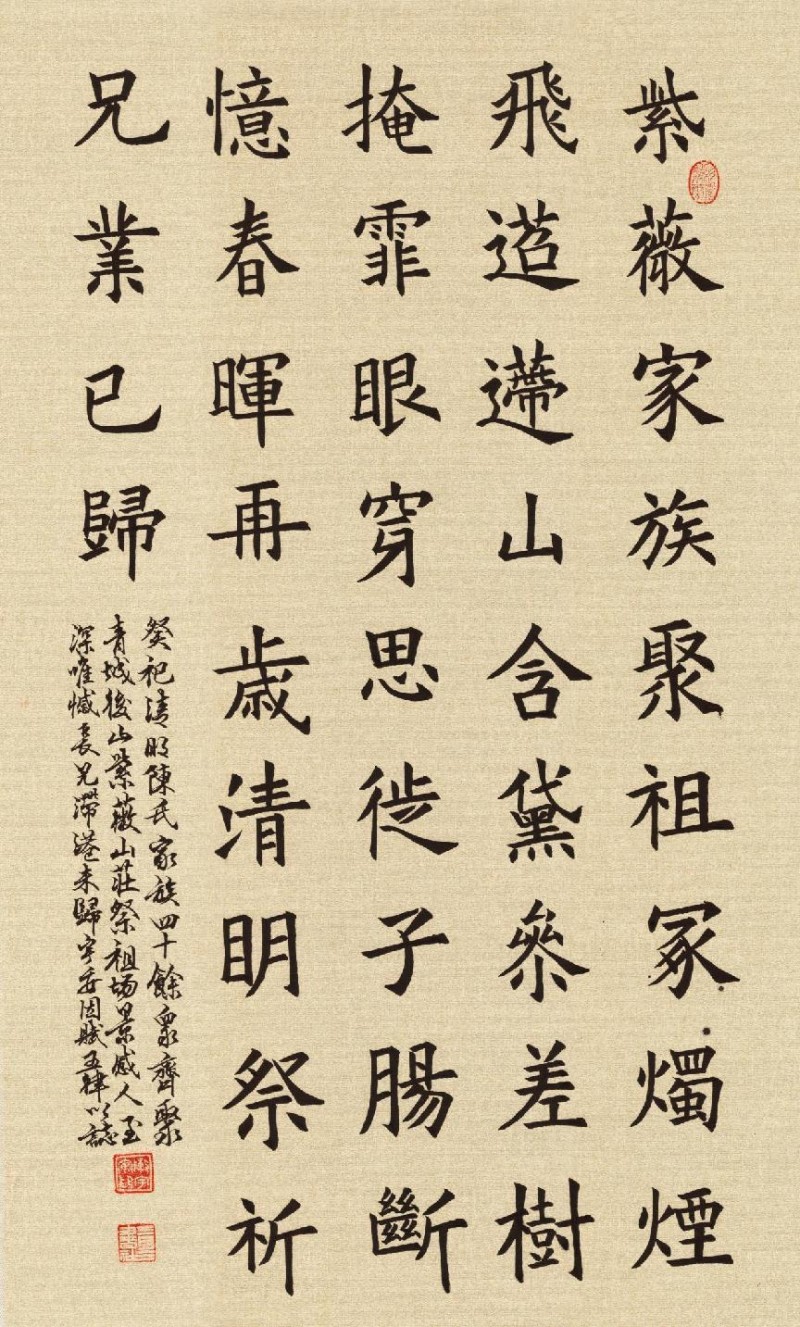 紫薇家族聚祖冢燭煙
飛迢遰山含黛參差樹
掩霏眼穿思徙子腸斷
憶春暉再歲清明祭祈
兄業已歸
癸祀清明陳氏家族四十餘衆齊聚
青城後山紫薇山莊祭祖場景感人至
深唯憾長兄滯港未歸宇安因賦五律以誌